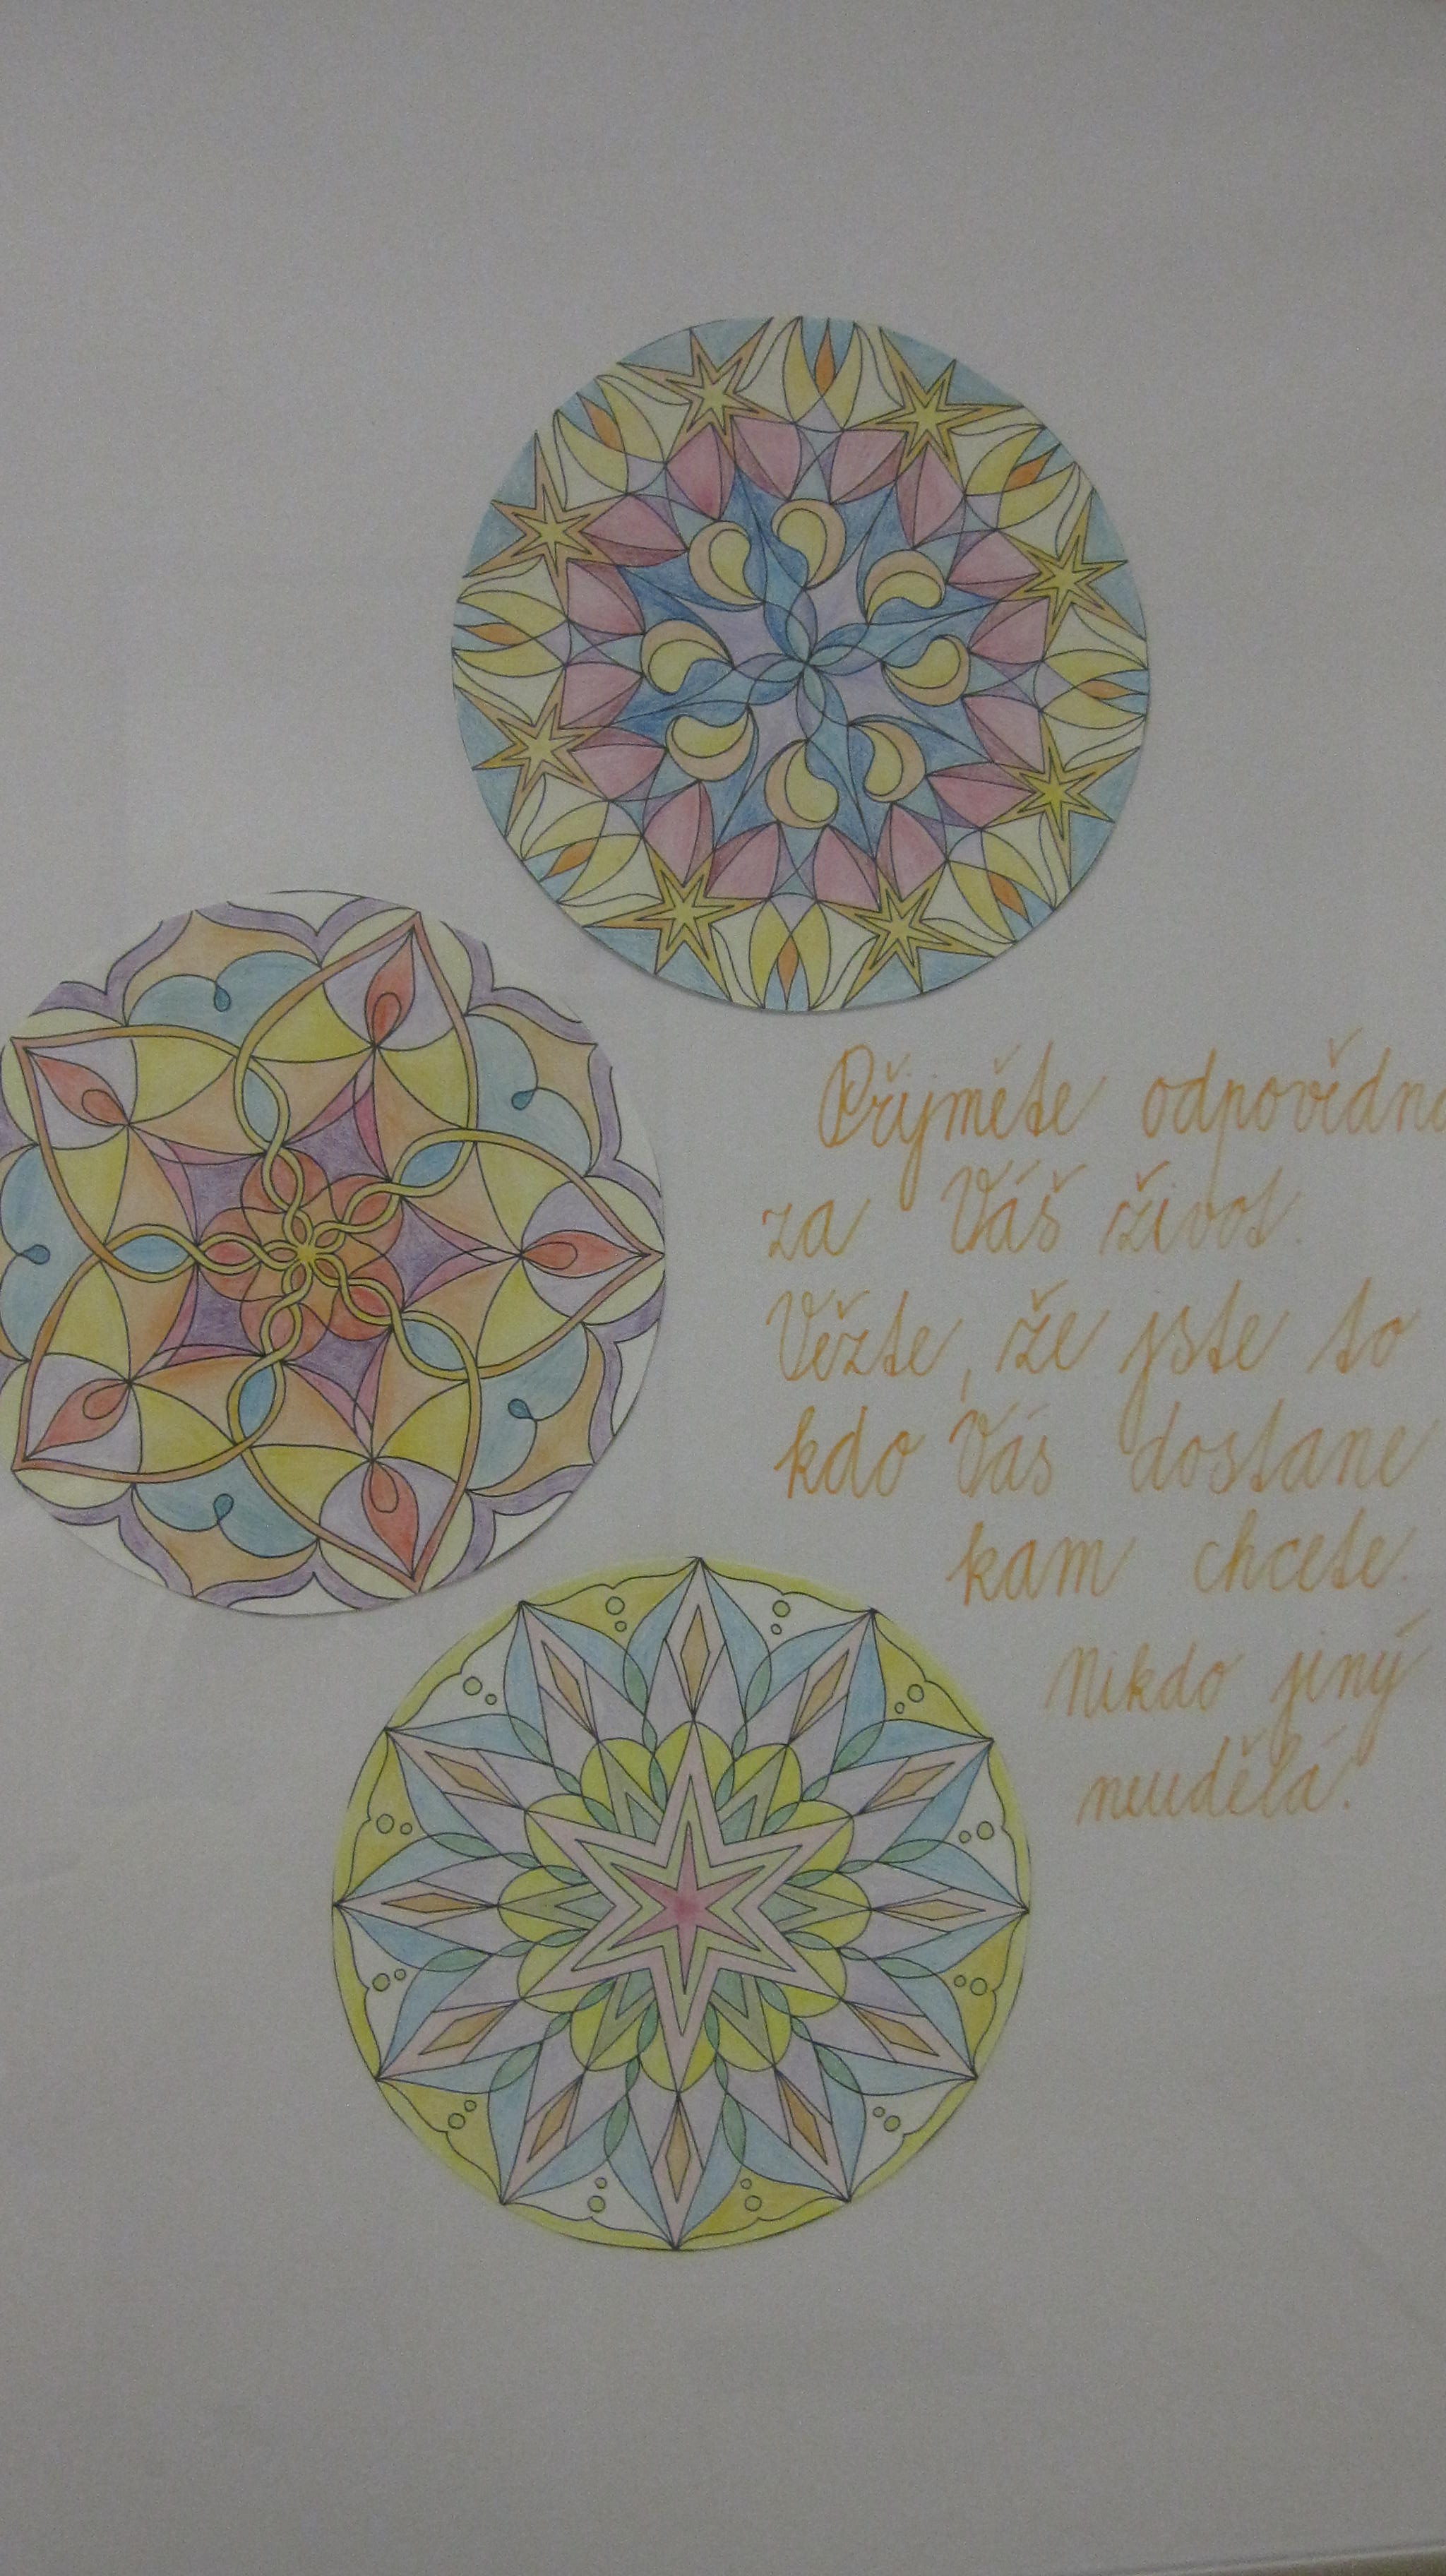 Přijměte odpovědno
za Váš život.
Vězte, že jste to
kdo Vás dostane
kam chcete.
Nikdo jiný
neudělá.